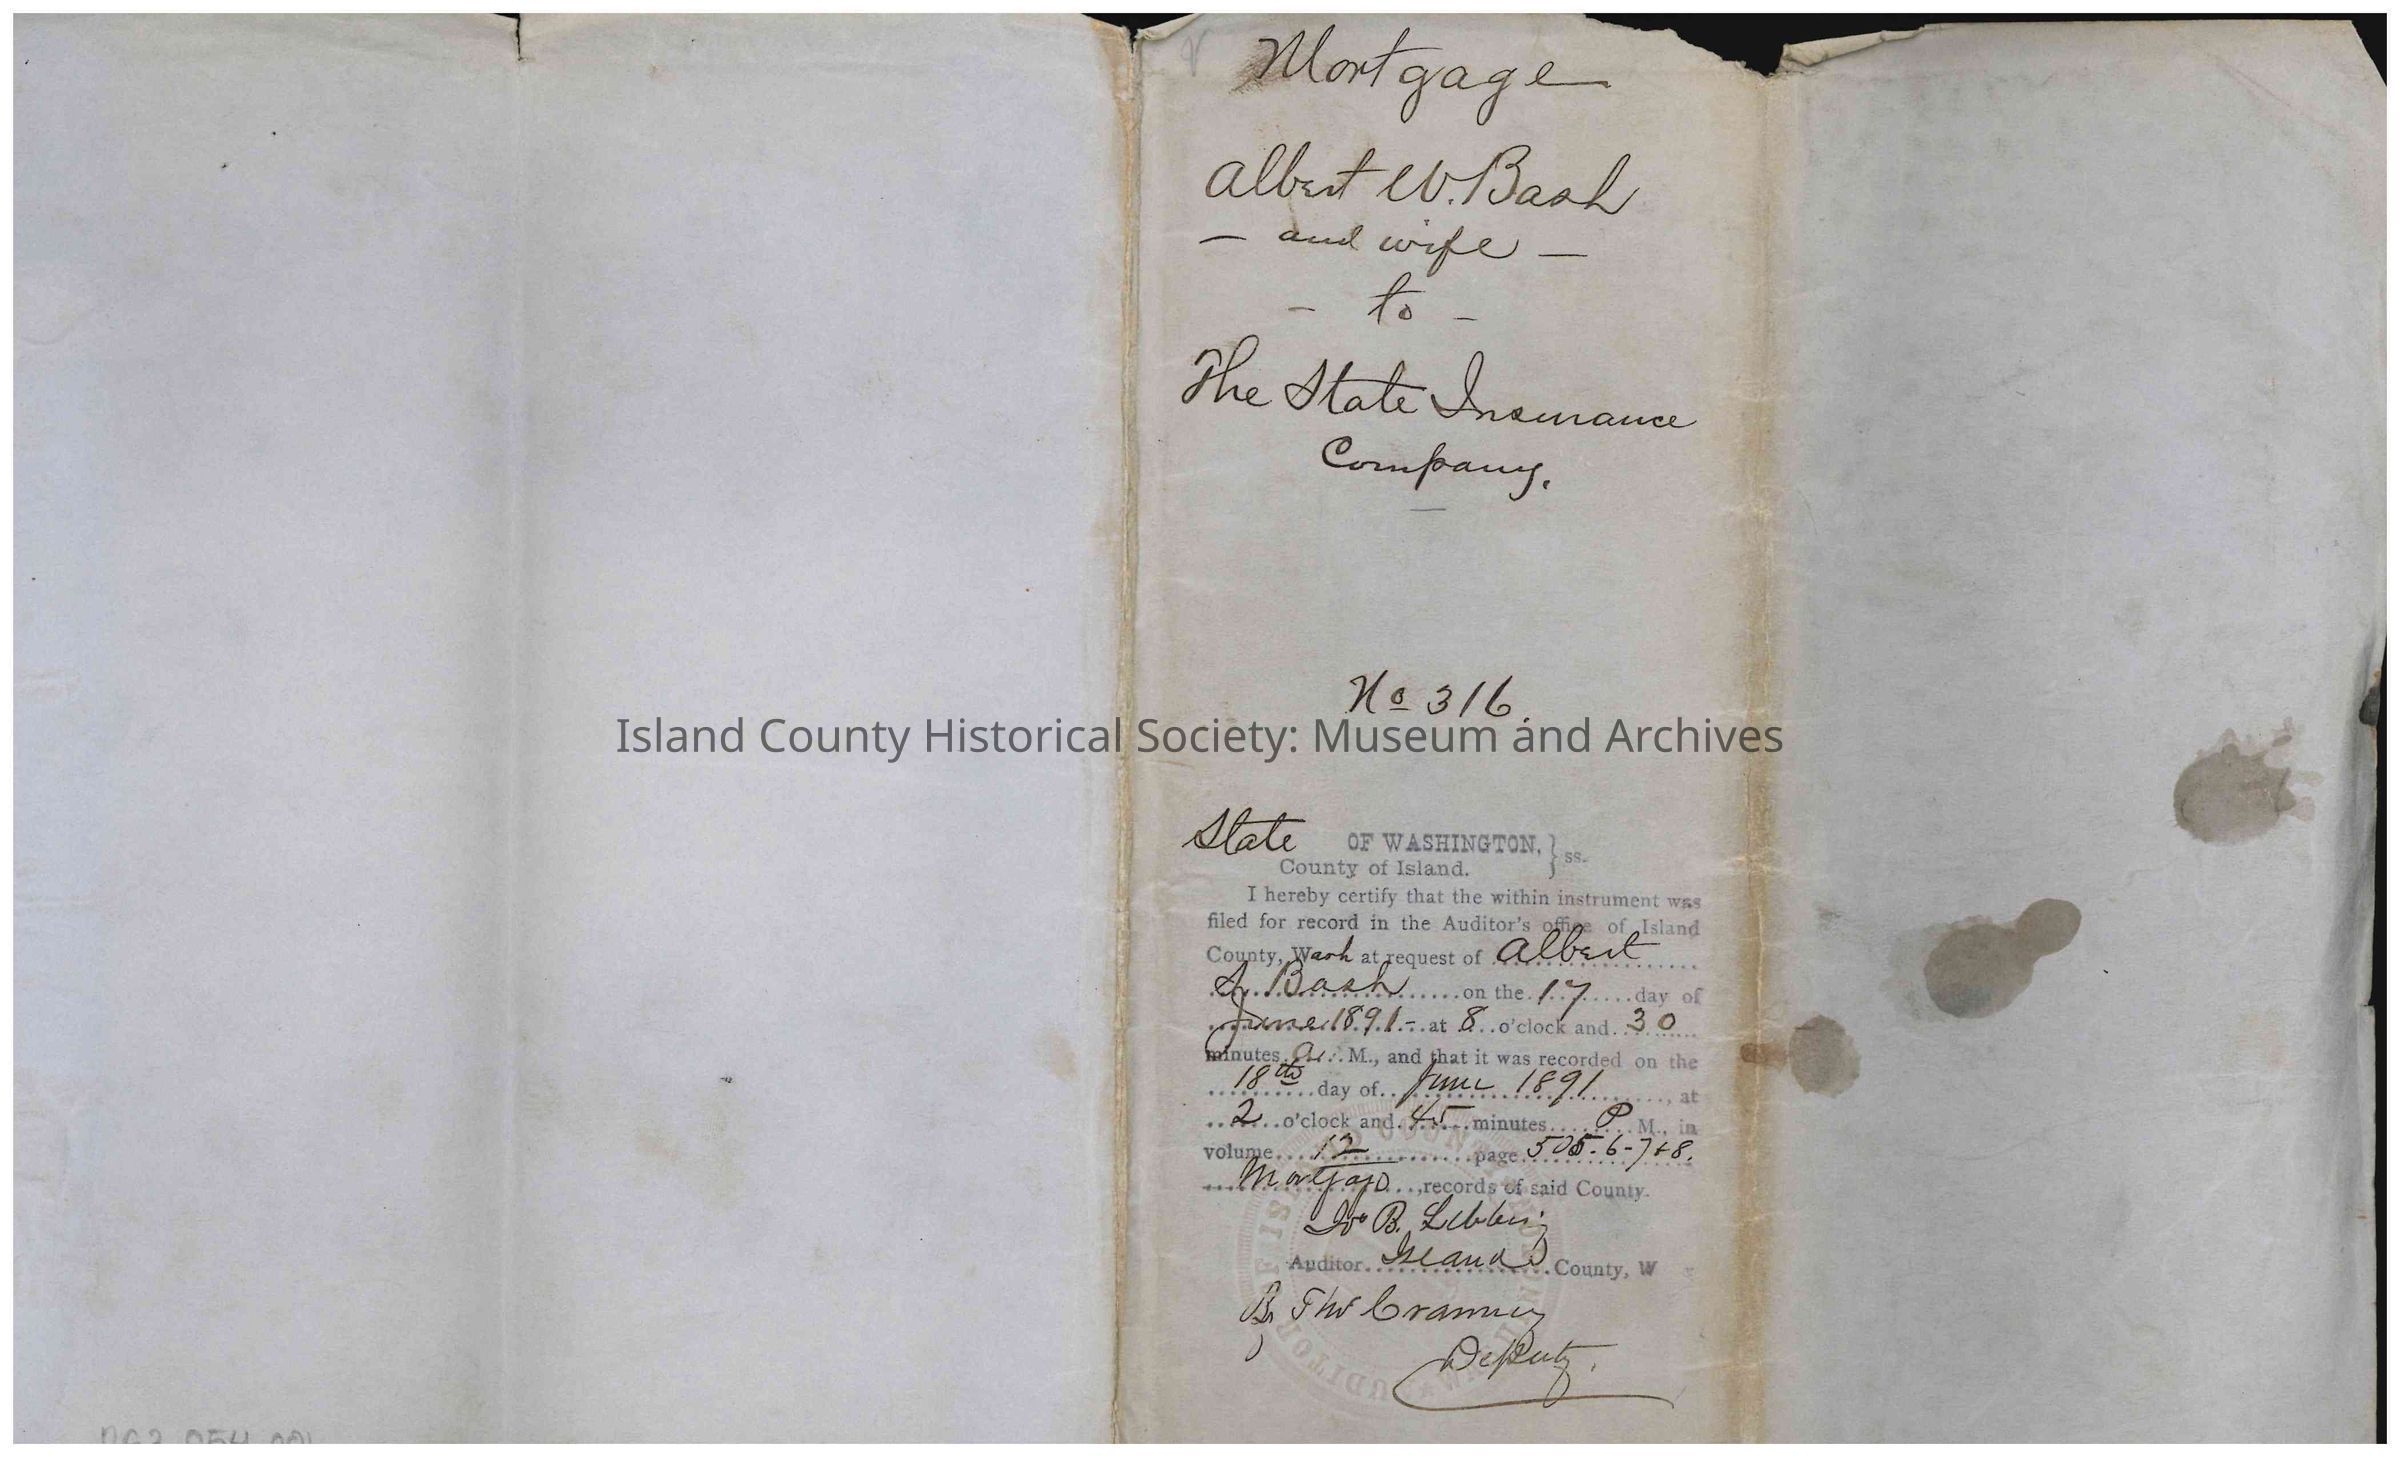 Mortgage
Albert W. Bash
— and wife —
- to -
The State Insurance
Company.
No 316.
Island County Historical Society: Museum and Archives
State OF WASHINGTON, } ss.
County of Island.
I hereby certify that the within instrument was
filed for record in the Auditor's office of Island
County, Wash at request of Albert
Bash on the 17 day of
June 1891 - at 8 o'clock and 30
minutes a. M., and that it was recorded on the
18th day of June 1891, at
2 o'clock and 45 minutes P M., in
volume 12 page 505-6-7+8.
Mortgage, records of said County.
B. Libbey
Auditor Island County, W
By Thos Cranney
Deputy.